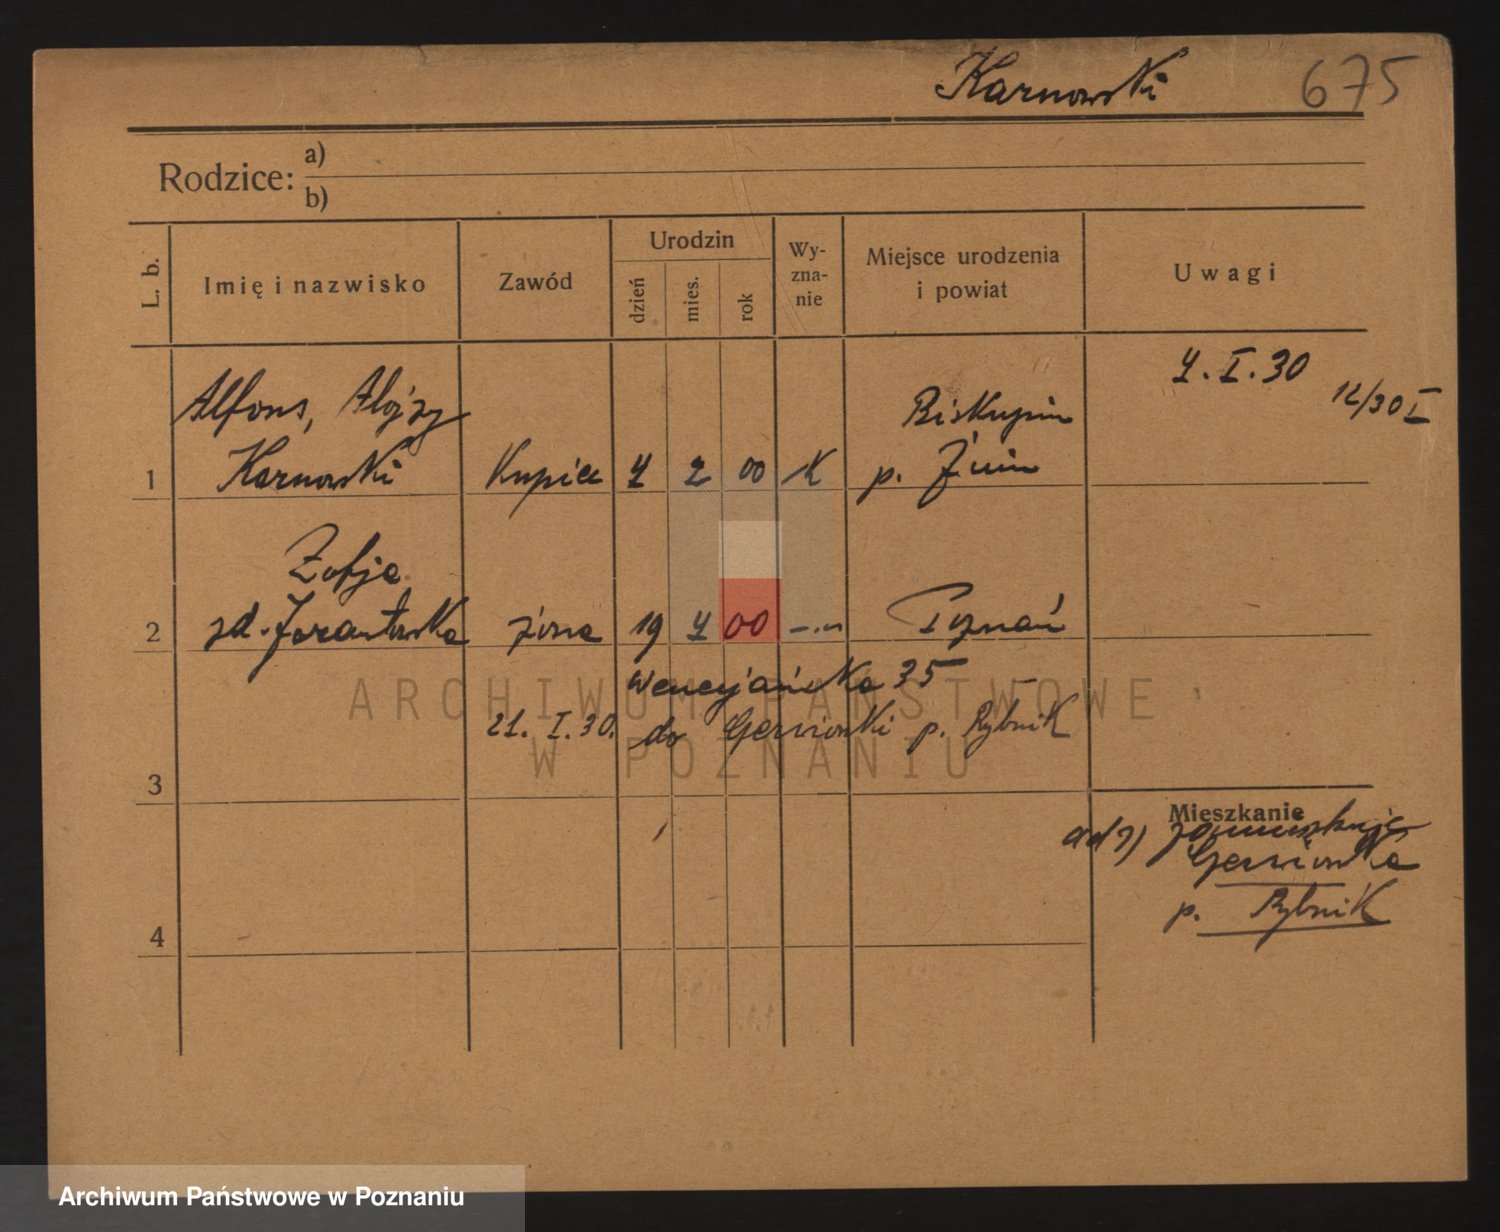 Karnowski 675
Rodzice: a)
b)
L. b. Imię i nazwisko Zawód Urodzin dzień mies. rok Wy-zna-nie Miejsce urodzenia i powiat Uwagi
4. I. 30
12/30 I
Alfons, Alojzy Biskupin
1 Karnowski Kupiec 4 2 00 K p. Żnin
Zofja
2 żona 19 4 00 -.,, Poznań
Wenecjańska 35
21. I. 30. do p. Rybnik
3
Mieszkanie
ad 2)
4 p. Rybnik
ARCHIWUM PAŃSTWOWE
W POZNANIU
Archiwum Państwowe w Poznaniu